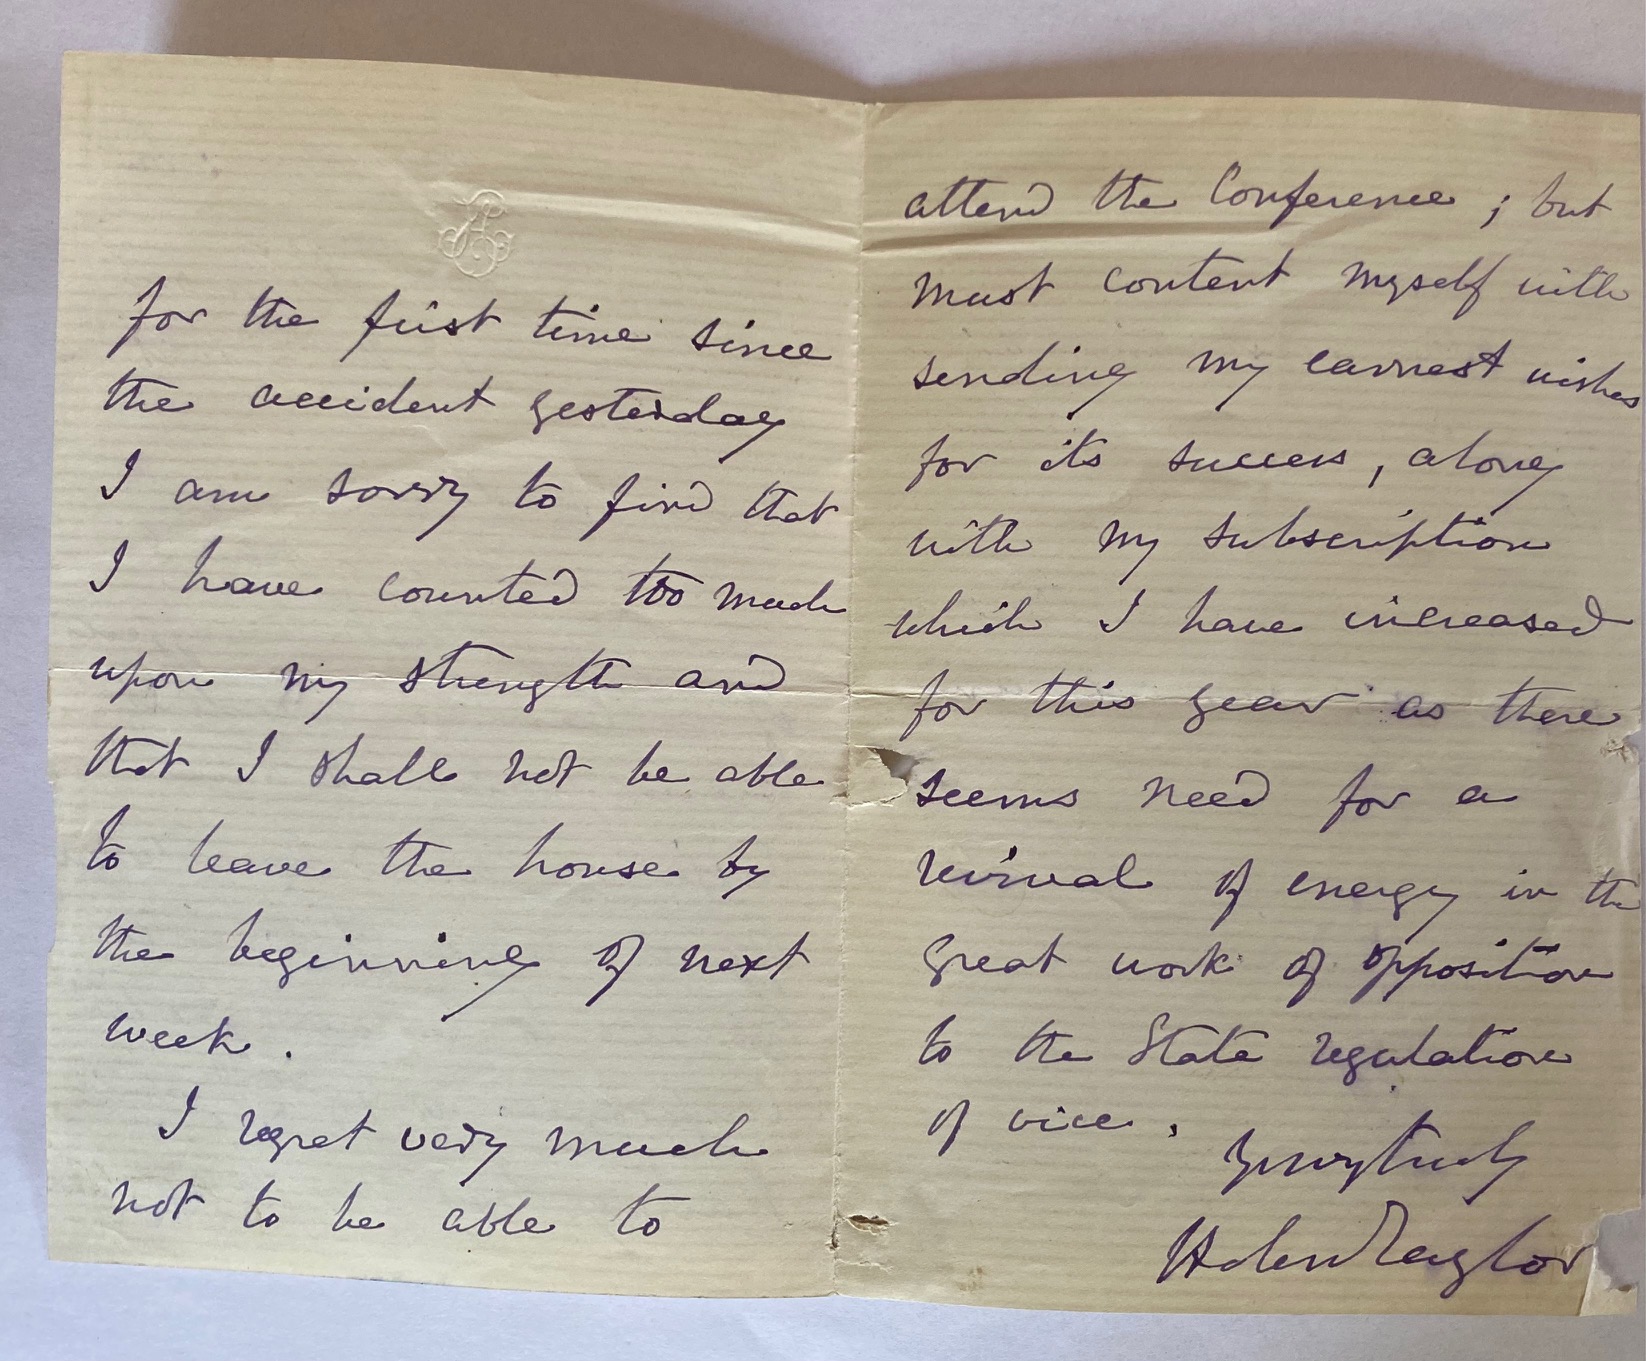 for the first time since
the accident yesterday
I am sorry to find that
I have counted too much
upon my strength and
that I shall not be able
to leave the house by
the beginning of next
week.
I regret very much
not to be able to
attend the Conference; but
must content myself with
sending my earnest wishes
for its success, along
with my subscription
which I have increased
for this year as there
seems need for a
revival of energy in the
great work of opposition
to the State regulation
of vice.
Yours truly
Helen Taylor